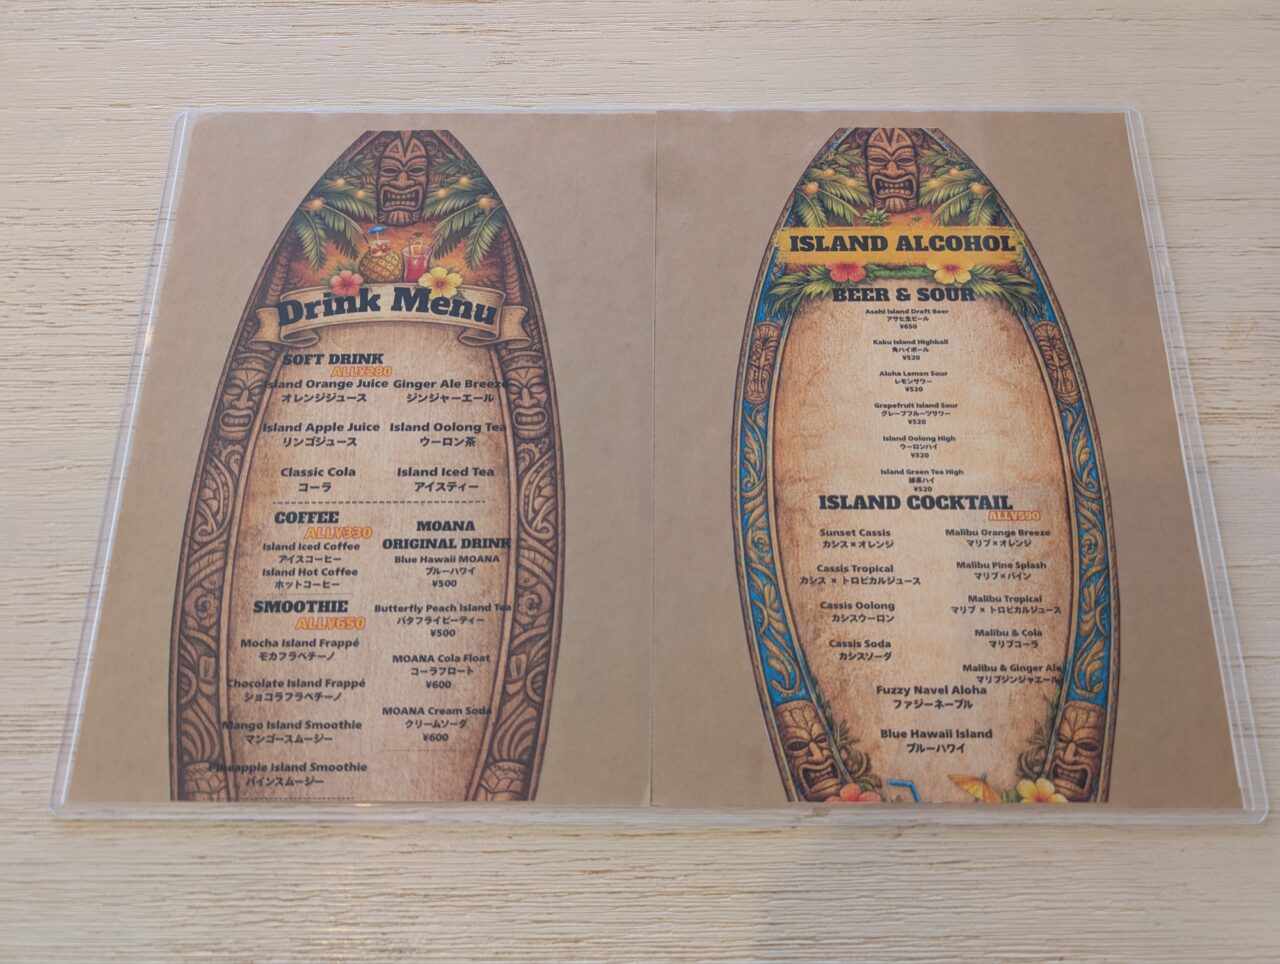 Drink Menu
SOFT DRINK
ALL¥280
Island Orange Juice
オレンジジュース
Ginger Ale Breeze
ジンジャーエール
Island Apple Juice
リンゴジュース
Island Oolong Tea
ウーロン茶
Classic Cola
コーラ
Island Iced Tea
アイスティー
COFFEE
ALL¥330
Island Iced Coffee
アイスコーヒー
Island Hot Coffee
ホットコーヒー
SMOOTHIE
ALL¥650
Mocha Island Frappé
モカフラペチーノ
Chocolate Island Frappé
ショコラフラペチーノ
Mango Island Smoothie
マンゴースムージー
Pineapple Island Smoothie
パインスムージー
MOANA
ORIGINAL DRINK
Blue Hawaii MOANA
ブルーハワイ
¥500
Butterfly Peach Island Tea
バタフライピーティー
¥500
MOANA Cola Float
コーラフロート
¥600
MOANA Cream Soda
クリームソーダ
¥600
ISLAND ALCOHOL
BEER & SOUR
Asahi Island Draft Beer
アサヒ生ビール
¥650
Kaku Island Highball
角ハイボール
¥520
Aloha Lemon Sour
レモンサワー
¥520
Grapefruit Island Sour
グレープフルーツサワー
¥520
Island Oolong High
ウーロンハイ
¥520
Island Green Tea High
緑茶ハイ
¥520
ISLAND COCKTAIL
ALL¥590
Sunset Cassis
カシス×オレンジ
Cassis Tropical
カシス × トロピカルジュース
Cassis Oolong
カシスウーロン
Cassis Soda
カシスソーダ
Malibu Orange Breeze
マリブ×オレンジ
Malibu Pine Splash
マリブ×パイン
Malibu Tropical
マリブ × トロピカルジュース
Malibu & Cola
マリブコーラ
Malibu & Ginger Ale
マリブジンジャエール
Fuzzy Navel Aloha
ファジーネーブル
Blue Hawaii Island
ブルーハワイ